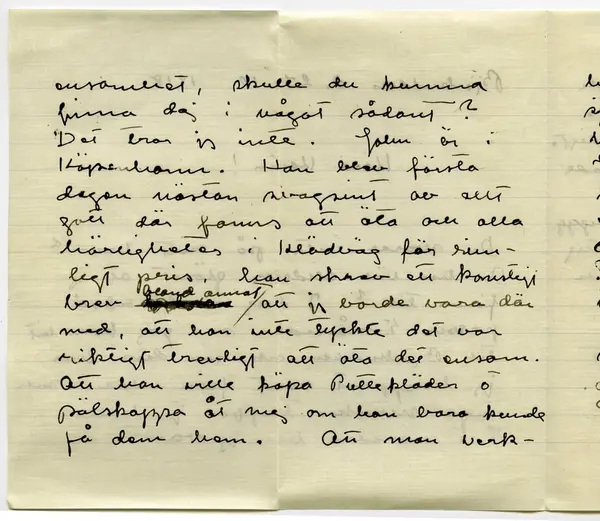 ensamhet, skulle du kunna
finna dig i något sådant?
Det tror jg inte. John är i
Köpenhamn. Han blev första
dagen nästan svagsint av allt
gott där fanns att äta och alla
härligheter i klädväg för rim-
ligt pris, han skrev ett konstigt
brev bland annat / att jg borde vara där
med, att han inte tyckte det var
riktigt trevligt att äta det ensam.
Att han ville köpa kläder o
pälskappa åt mig om han bara kunde
få dem hem. Att man verk-